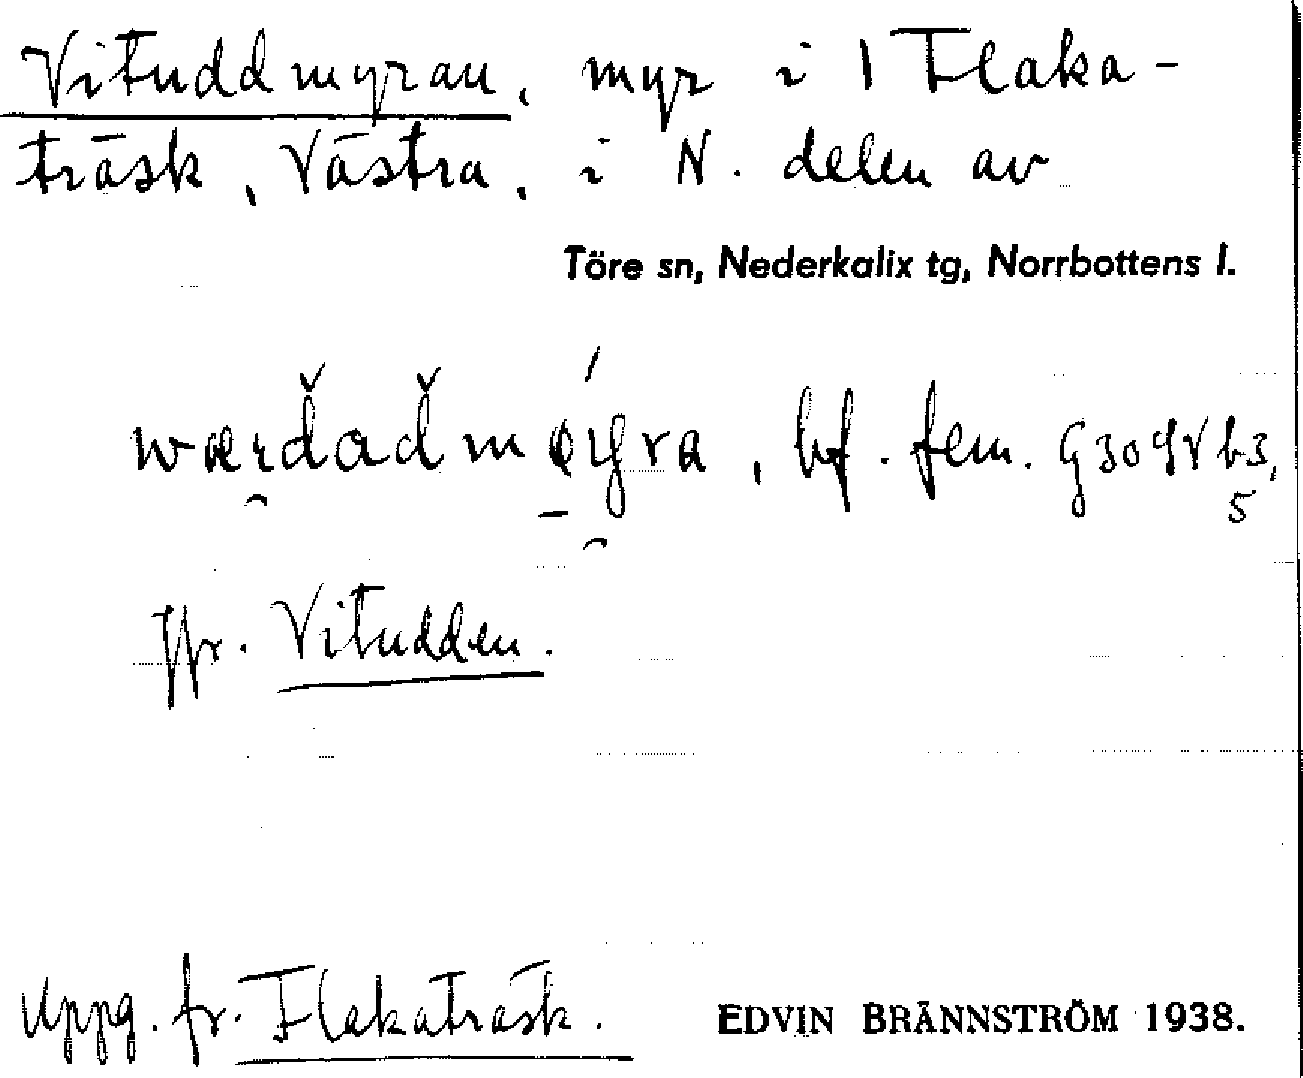 Vituddmyran, myr i 1 Flaka-
träsk, Västra, i N. delen av
Töre sn, Nederkalix tg, Norrbottens l.
bf. fem.
Jfr. Vitudden.
Uppg. fr. Flakaträsk.
EDVIN BRÄNNSTRÖM 1938.